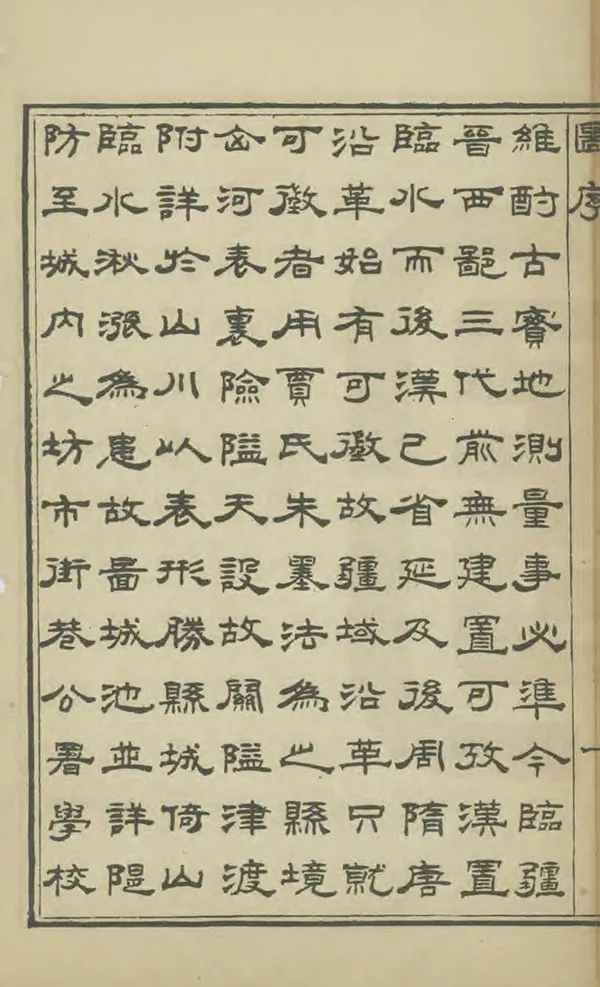 圖序 一
維酌古實地測量事必準今臨疆
晉西鄙三代前無建置可攷漢置
臨水而後漢已省延及後周隋唐
沿革始有可徵故疆域沿革只就
可徵者用賈氏朱墨法為之縣境
河表裏險隘天設故關隘津渡
附詳於山川以表形勝縣城倚山
臨水湫漲為患故圖城池並詳隄
防至城內之坊市街巷公署學校